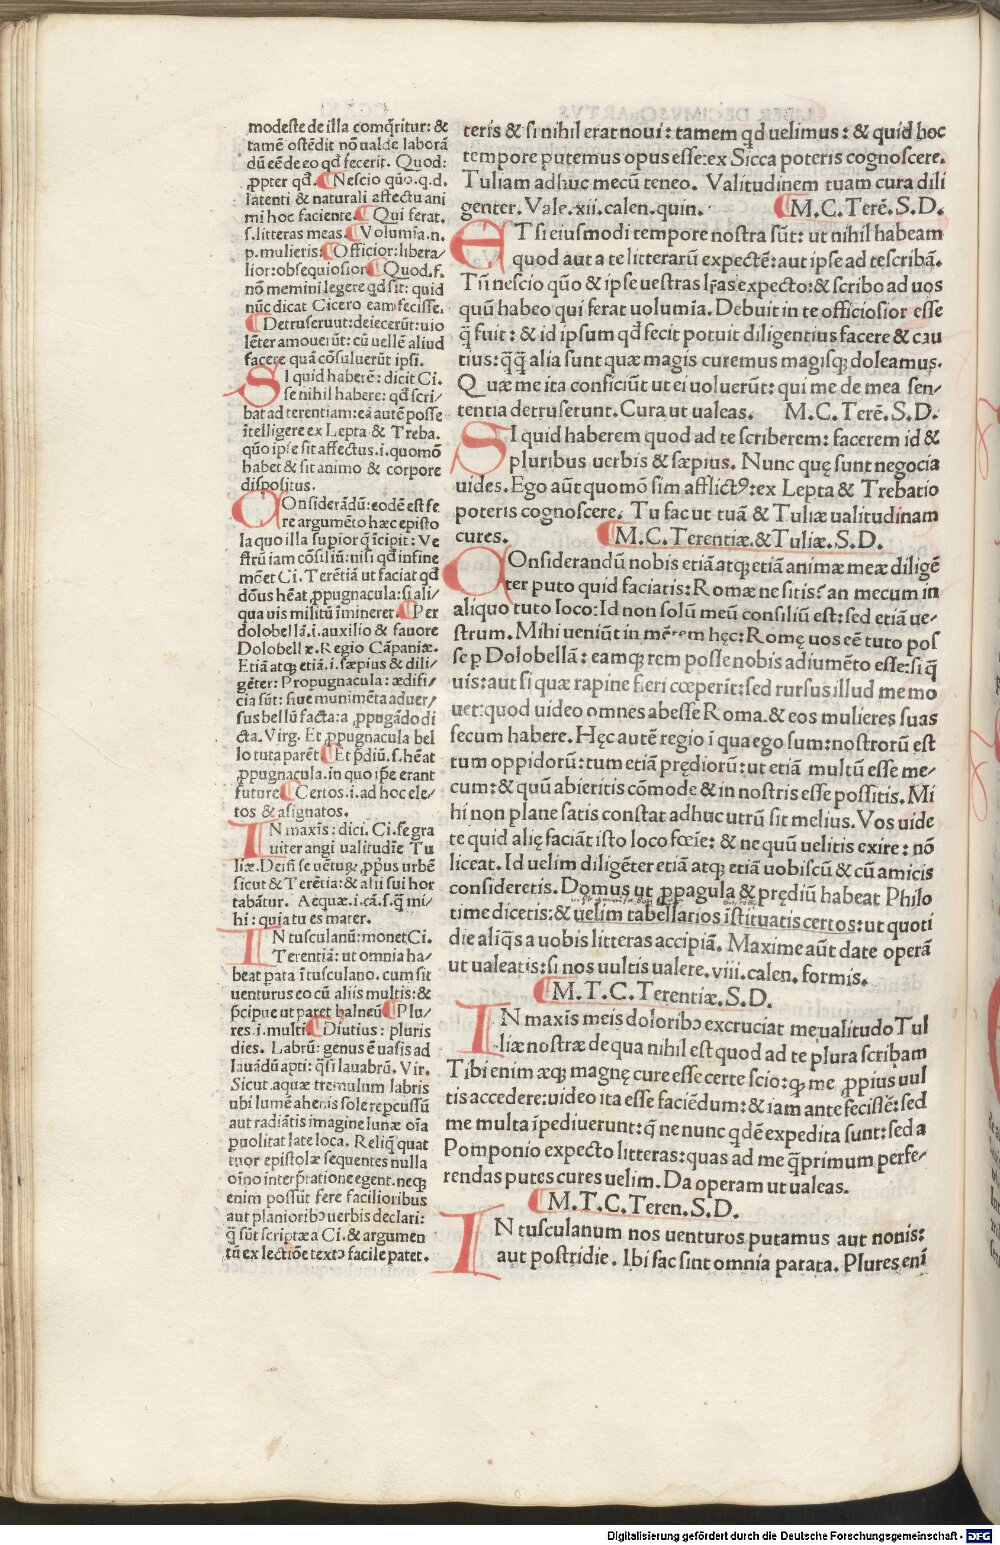 modeste de illa comq̃ritur: &
tamẽ ostẽdit nõ ualde laborã
dũ eẽ de eo qđ fecerit. Quod:
ꝓpter qđ. Nescio qũo.q.d.
latenti & naturali affectu ani
mi hoc faciente. Qui ferat.
s.litteras meas. Volumĩa.n.
p.mulieris: Officior:libera⸗
lior:obsequiosior Quod.f.
nõ memini legere qđ sit: quid
nũc dicat Cicero eam fecisse.
Detruserunt:deiecerũt:uio
lẽter amouerũt: cũ uellẽ aliud
facere quã cõsuluerũt ipsi.
SI quid haberẽ: dicit Ci.
se nihil habere: qđ scri⸗
bat ad terentiam: eã autẽ posse
ĩtelligere ex Lepta & Treba.
qũo ipse sit affectus.i.quomõ
habet & sit animo & corpore
dispositus.
COnsiderãdũ: eodẽ est fe
re argumẽto hæc episto
la quo illa supior q̃ ĩcipit: Ve
strũ iam cõsiliũ: nisi qđ infine
mõet Ci. Terẽtiã ut faciat qđ
dõus hẽat ꝓpugnacula: si ali⸗
qua uis militũ ĩmineret. Per
dolobellã.i.auxilio & fauore
Dolobellæ. Regio Cãpaniæ.
Etiã atqꝫ etiã.i.sæpius & dili⸗
gẽter: Propugnacula: ædifi⸗
cia sũt: siue munimẽta aduer⸗
sus bellũ facta: a ꝓpugãdo di
cta. Virg. Et ꝓpugnacula bel
lo tuta parẽt Et p̃diũ.s.hẽat
ꝓpugnacula.in quo ip̃e erant
future Certos.i.ad hoc ele⸗
tos & asignatos.
IN maxĩs: dici. Ci. se gra
uiter angi ualitudĩe Tu
liæ. Dein̄ se uẽtuꝝ ꝓpius urbẽ
sicut & Terẽtia: & alii sui hor
tabãtur. Aequæ.i.cã.s.q̃ mi⸗
hi: quia tu es mater.
IN tusculanũ: monet Ci.
Terentiã: ut omnia ha⸗
beat pata ĩ tusculano. cum sit
uenturus eo cũ aliis multis: &
p̃cipue ut paret balneũ Plu⸗
res.i.multi Diutius: pluris
dies. Labrũ: genus ẽ uasis ad
lauãdũ apti: q̃si lauabrũ. Vir.
Sicut aquæ tremulum labris
ubi lumẽ ahenis sole repcussũ
aut radiãtis imagine lunæ oĩa
puolitat late loca. Reliq̃ quat
tuor epistolæ sequentes nulla
oĩno interp̃tatione egent. neqꝫ
enim possũt fere facilioribus
aut planioribꝰ uerbis declari:
q̃ sũt scriptæ a Ci. & argumen
tũ ex lectiõe textꝰ facile patet.
teris & si nihil erat noui: tamem qđ uelimus: & quid hoc
tempore putemus opus esse: ex Sicca poteris cognoscere.
Tuliam adhuc mecũ teneo. Valitudinem tuam cura dili
genter. Vale. xii. calen. quin. M.C.Terẽ.S.D.
ET si eiusmodi tempore nostra sũt: ut nihil habeam
quod aut a te litterarũ expectẽ: aut ipse ad te scribã.
Tñ nescio qũo & ipse uestras lr̃as expecto: & scribo ad uos
quũ habeo qui ferat uolumia. Debuit in te officiosior esse
q̃ fuit: & id ipsum qđ fecit potuit diligentius facere & cau
tius: q̃q̃ alia sunt quæ magis curemus magisqꝫ doleamus.
Quæ me ita conficiũt ut ei uoluerũt: qui me de mea sen⸗
tentia detruserunt. Cura ut ualeas. M.C.Terẽ.S.D.
SI quid haberem quod ad te scriberem: facerem id &
pluribus uerbis & sæpius. Nunc quę sunt negocia
uides. Ego aũt quomõ sim afflictꝰ: ex Lepta & Trebatio
poteris cognoscere. Tu fac ut tuã & Tuliæ ualitudinam
cures. M.C.Terentiæ.&Tuliæ.S.D.
COnsiderandũ nobis etiã atqꝫ etiã animæ meæ diligẽ
ter puto quid faciatis: Romæ ne sitis? an mecum in
aliquo tuto loco: Id non solũ meũ consiliũ est: sed etiã ue⸗
strum. Mihi ueniũt in mẽtem hęc: Romę uos eẽ tuto pos
se p Dolobellã: eamqꝫ rem posse nobis adiumẽto esse: si q̃
uis: aut si quæ rapine fieri cœperĩt: sed rursus illud me mo
uet: quod uideo omnes abesse Roma. & eos mulieres suas
secum habere. Hęc autẽ regio ĩ qua ego sum: nostrorũ est
tum oppidorũ: tum etiã prędiorũ: ut etiã multũ esse me⸗
cum: & quũ abieritis cõmode & in nostris esse possitis. Mi
hi non plane satis constat adhuc utrũ sit melius. Vos uide
te quid alię faciãt isto loco fœĩe: & ne quũ uelitis exire: nõ
liceat. Id uelim diligẽter etiã atqꝫ etiã uobiscũ & cũ amicis
consideretis. Domus ut ꝓpagula & prędiũ habeat Philo
time dicetis: & uelim tabellarios ĩstituatis certos: ut quoti
die aliq̃s a uobis litteras accipiã. Maxime aũt date operã
ut ualeatis: si nos uultis ualere. viii. calen. formis.
M.T.C.Terentiæ.S.D.
IN maxĩs meis doloribꝰ excruciat me ualitudo Tul
liæ nostræ de qua nihil est quod ad te plura scribam
Tibi enim æqꝫ magnę cure esse certe scio: qꝫ me ꝓpius uul
tis accedere: uideo ita esse faciẽdum: & iam ante fecissẽ: sed
me multa ĩpediuerunt: q̃ ne nunc qdẽ expedita sunt: sed a
Pomponio expecto litteras: quas ad me q̃primum perfe⸗
rendas putes cures uelim. Da operam ut ualeas.
M.T.C.Teren.S.D.
IN tusculanum nos uenturos putamus aut nonis:
aut postridie. Ibi fac sint omnia parata. Plures enĩ
Digitalisierung gefördert durch die Deutsche Forschungsgemeinschaft - DFG